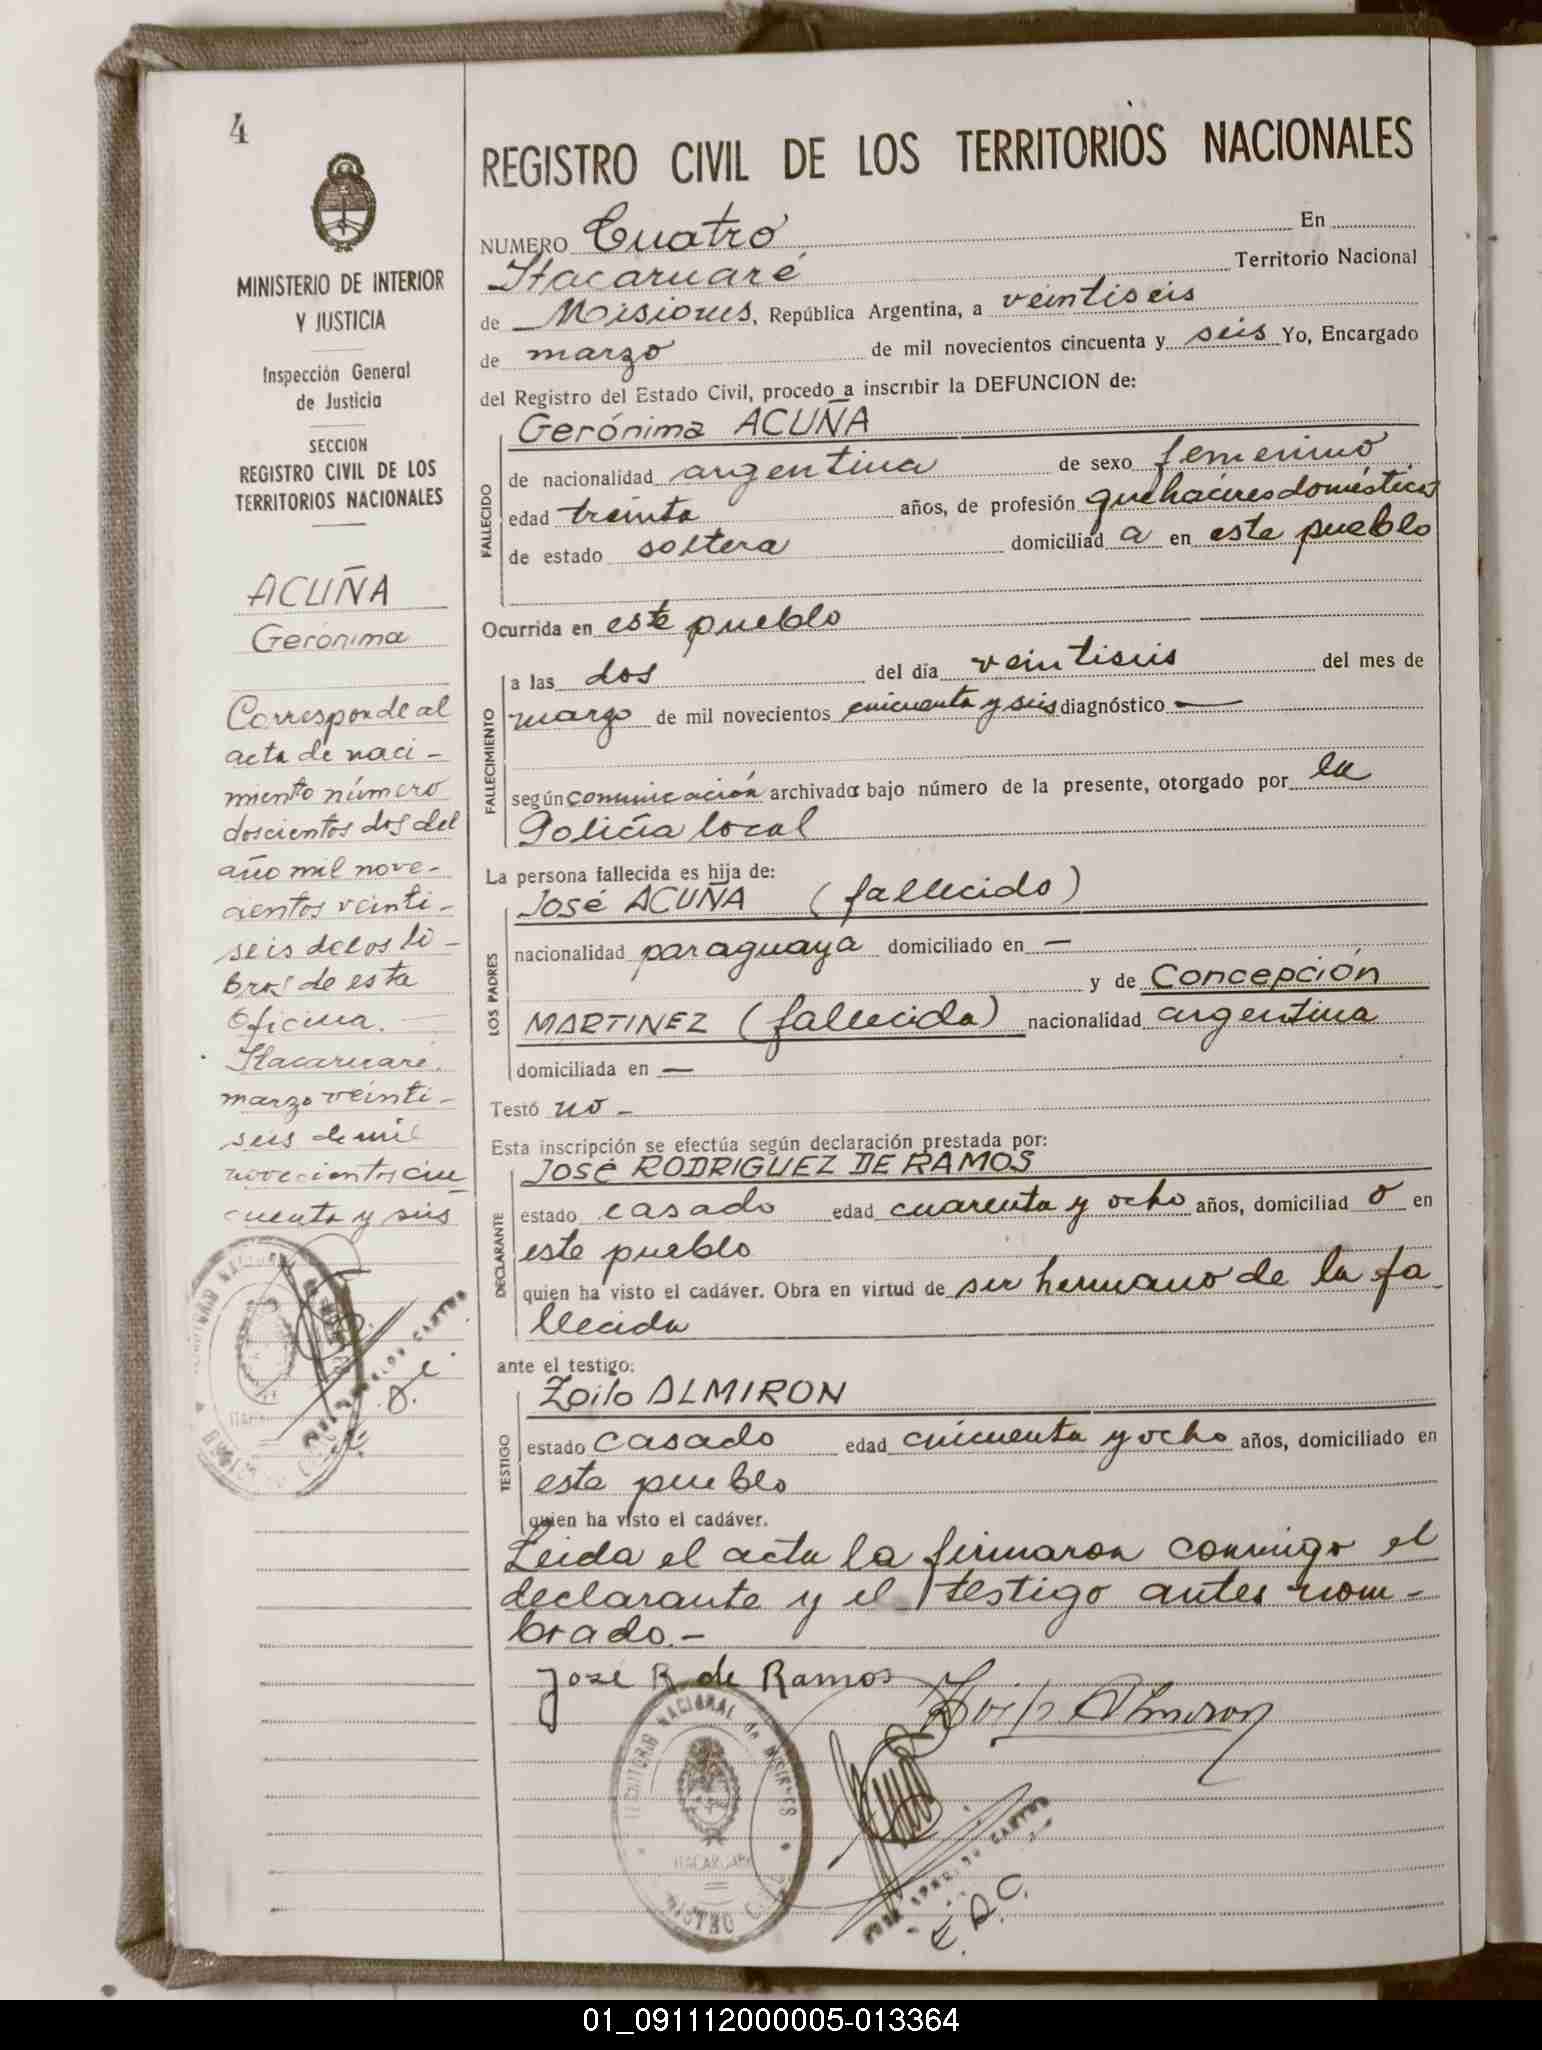 4
MINISTERIO DE INTERIOR
Y JUSTICIA
Inspección General
de Justicia
SECCION
REGISTRO CIVIL DE LOS
TERRITORIOS NACIONALES
ACUÑA
Gerónima
Corresponde al
acta de naci-
miento número
doscientos dos del
año mil nove-
cientos veinti-
seis de los li-
bros de esta
Oficina.
Itacaruaré,
marzo veinti-
seis de mil
novecientos cin-
cuenta y seis
REGISTRO CIVIL DE LOS TERRITORIOS NACIONALES
NUMERO Cuatro En
Itacaruaré Territorio Nacional
de Misiones, República Argentina, a veintiseis
de marzo de mil novecientos cincuenta y seis Yo, Encargado
del Registro del Estado Civil, procedo a inscribir la DEFUNCION de:
Gerónima ACUÑA
FALLECIDO
de nacionalidad argentina de sexo femenino
edad treinta años, de profesión quehaceres domésticos
de estado soltera domiciliad a en este pueblo
Ocurrida en este pueblo
FALLECIMIENTO
a las dos del día veintiseis del mes de
marzo de mil novecientos cincuenta y seis diagnóstico —
según comunicación archivada bajo número de la presente, otorgado por la
Policía local
La persona fallecida es hija de:
LOS PADRES
José ACUÑA (fallecido)
nacionalidad paraguaya domiciliado en —
y de Concepción
MARTINEZ (fallecida) nacionalidad argentina
domiciliada en —
Testó no -
Esta inscripción se efectúa según declaración prestada por:
DECLARANTE
José RODRIGUEZ DE RAMOS
estado casado edad cuarenta y ocho años, domiciliad o en
este pueblo
quien ha visto el cadáver. Obra en virtud de ser hermano de la fa-
llecida
ante el testigo:
TESTIGO
Zoilo ALMIRON
estado casado edad cincuenta y ocho años, domiciliado en
este pueblo
quien ha visto el cadáver.
Leida el acta la firmaron conmigo el
declarante y el testigo antes nom-
brado.-
José R de Ramos
Zoilo Almiron
TERRITORIO NACIONAL de MISIONES
ITACARUARE
E. D. C.
01_091112000005-013364